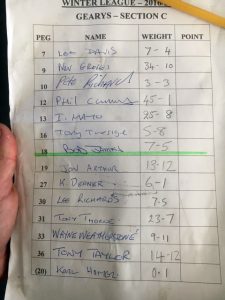 WINTER LEAGUE - 2016-
GEARYS – SECTION C
PEG NAME WEIGHT POINT
7 LEE DAVIS 7-4
9 34-10
10 PETE 3-3
12 PHIL 45-1
13 I. 25-8
16 TONY 5-8
18 7-5
19 JON ARTHUR 13-12
27 K. DEANER 6-1
30 LEE RICHARDS 7-5
31 TONY THORNE 23-7
33 WAYNE WEATHERSTONE 9-11
36 TONY TAYLOR 14-12
(20) KARL 0-1